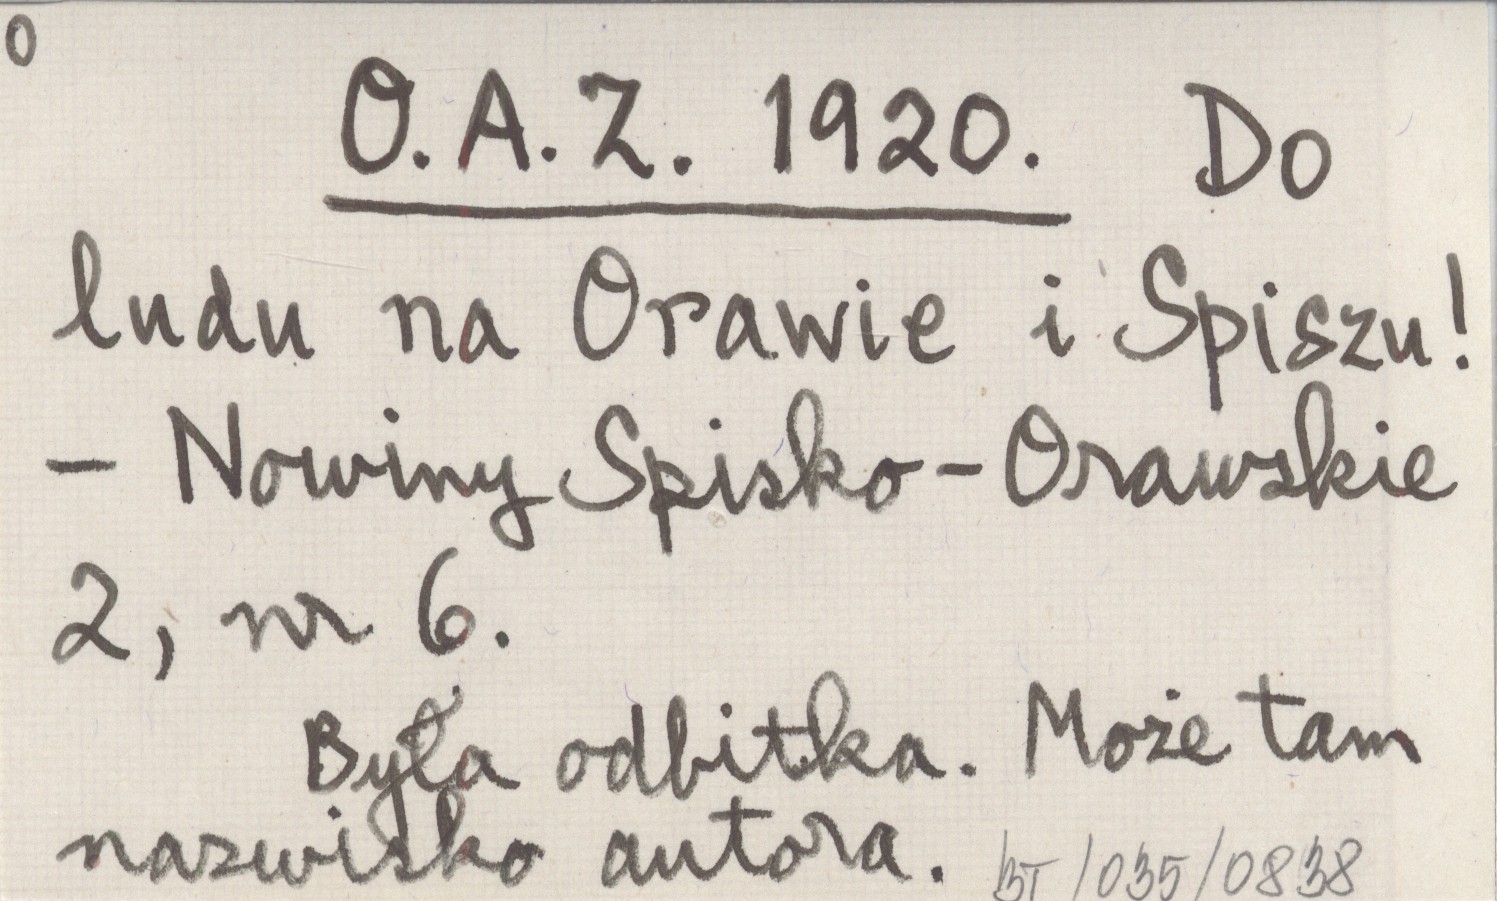 O
O.A.Z. 1920. Do
ludu na Orawie i Spiszu!
- Nowiny Spisko-Orawskie
2, nr 6.
Była odbitka. Może tam
nazwisko autora.
BT/035/0838